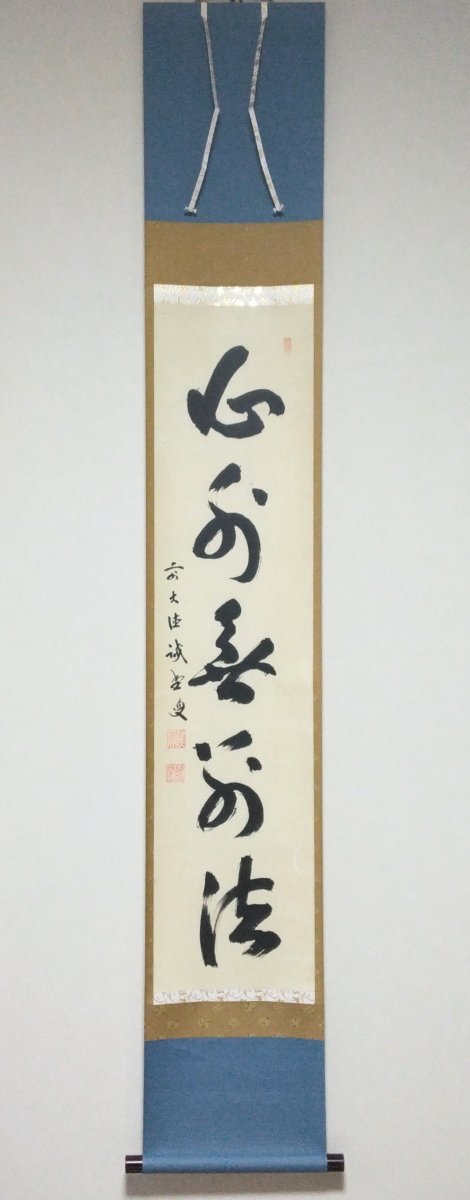 心外無別法
前大徳誡堂叟